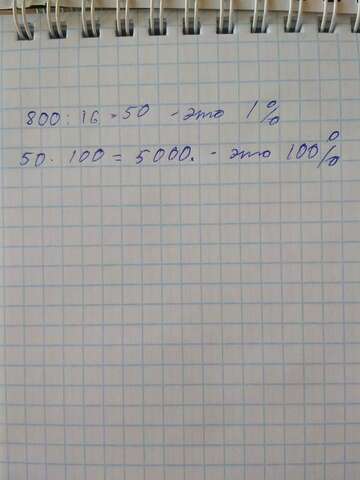 800 : 16 = 50 - это 1%
50 · 100 = 5000. - это 100%